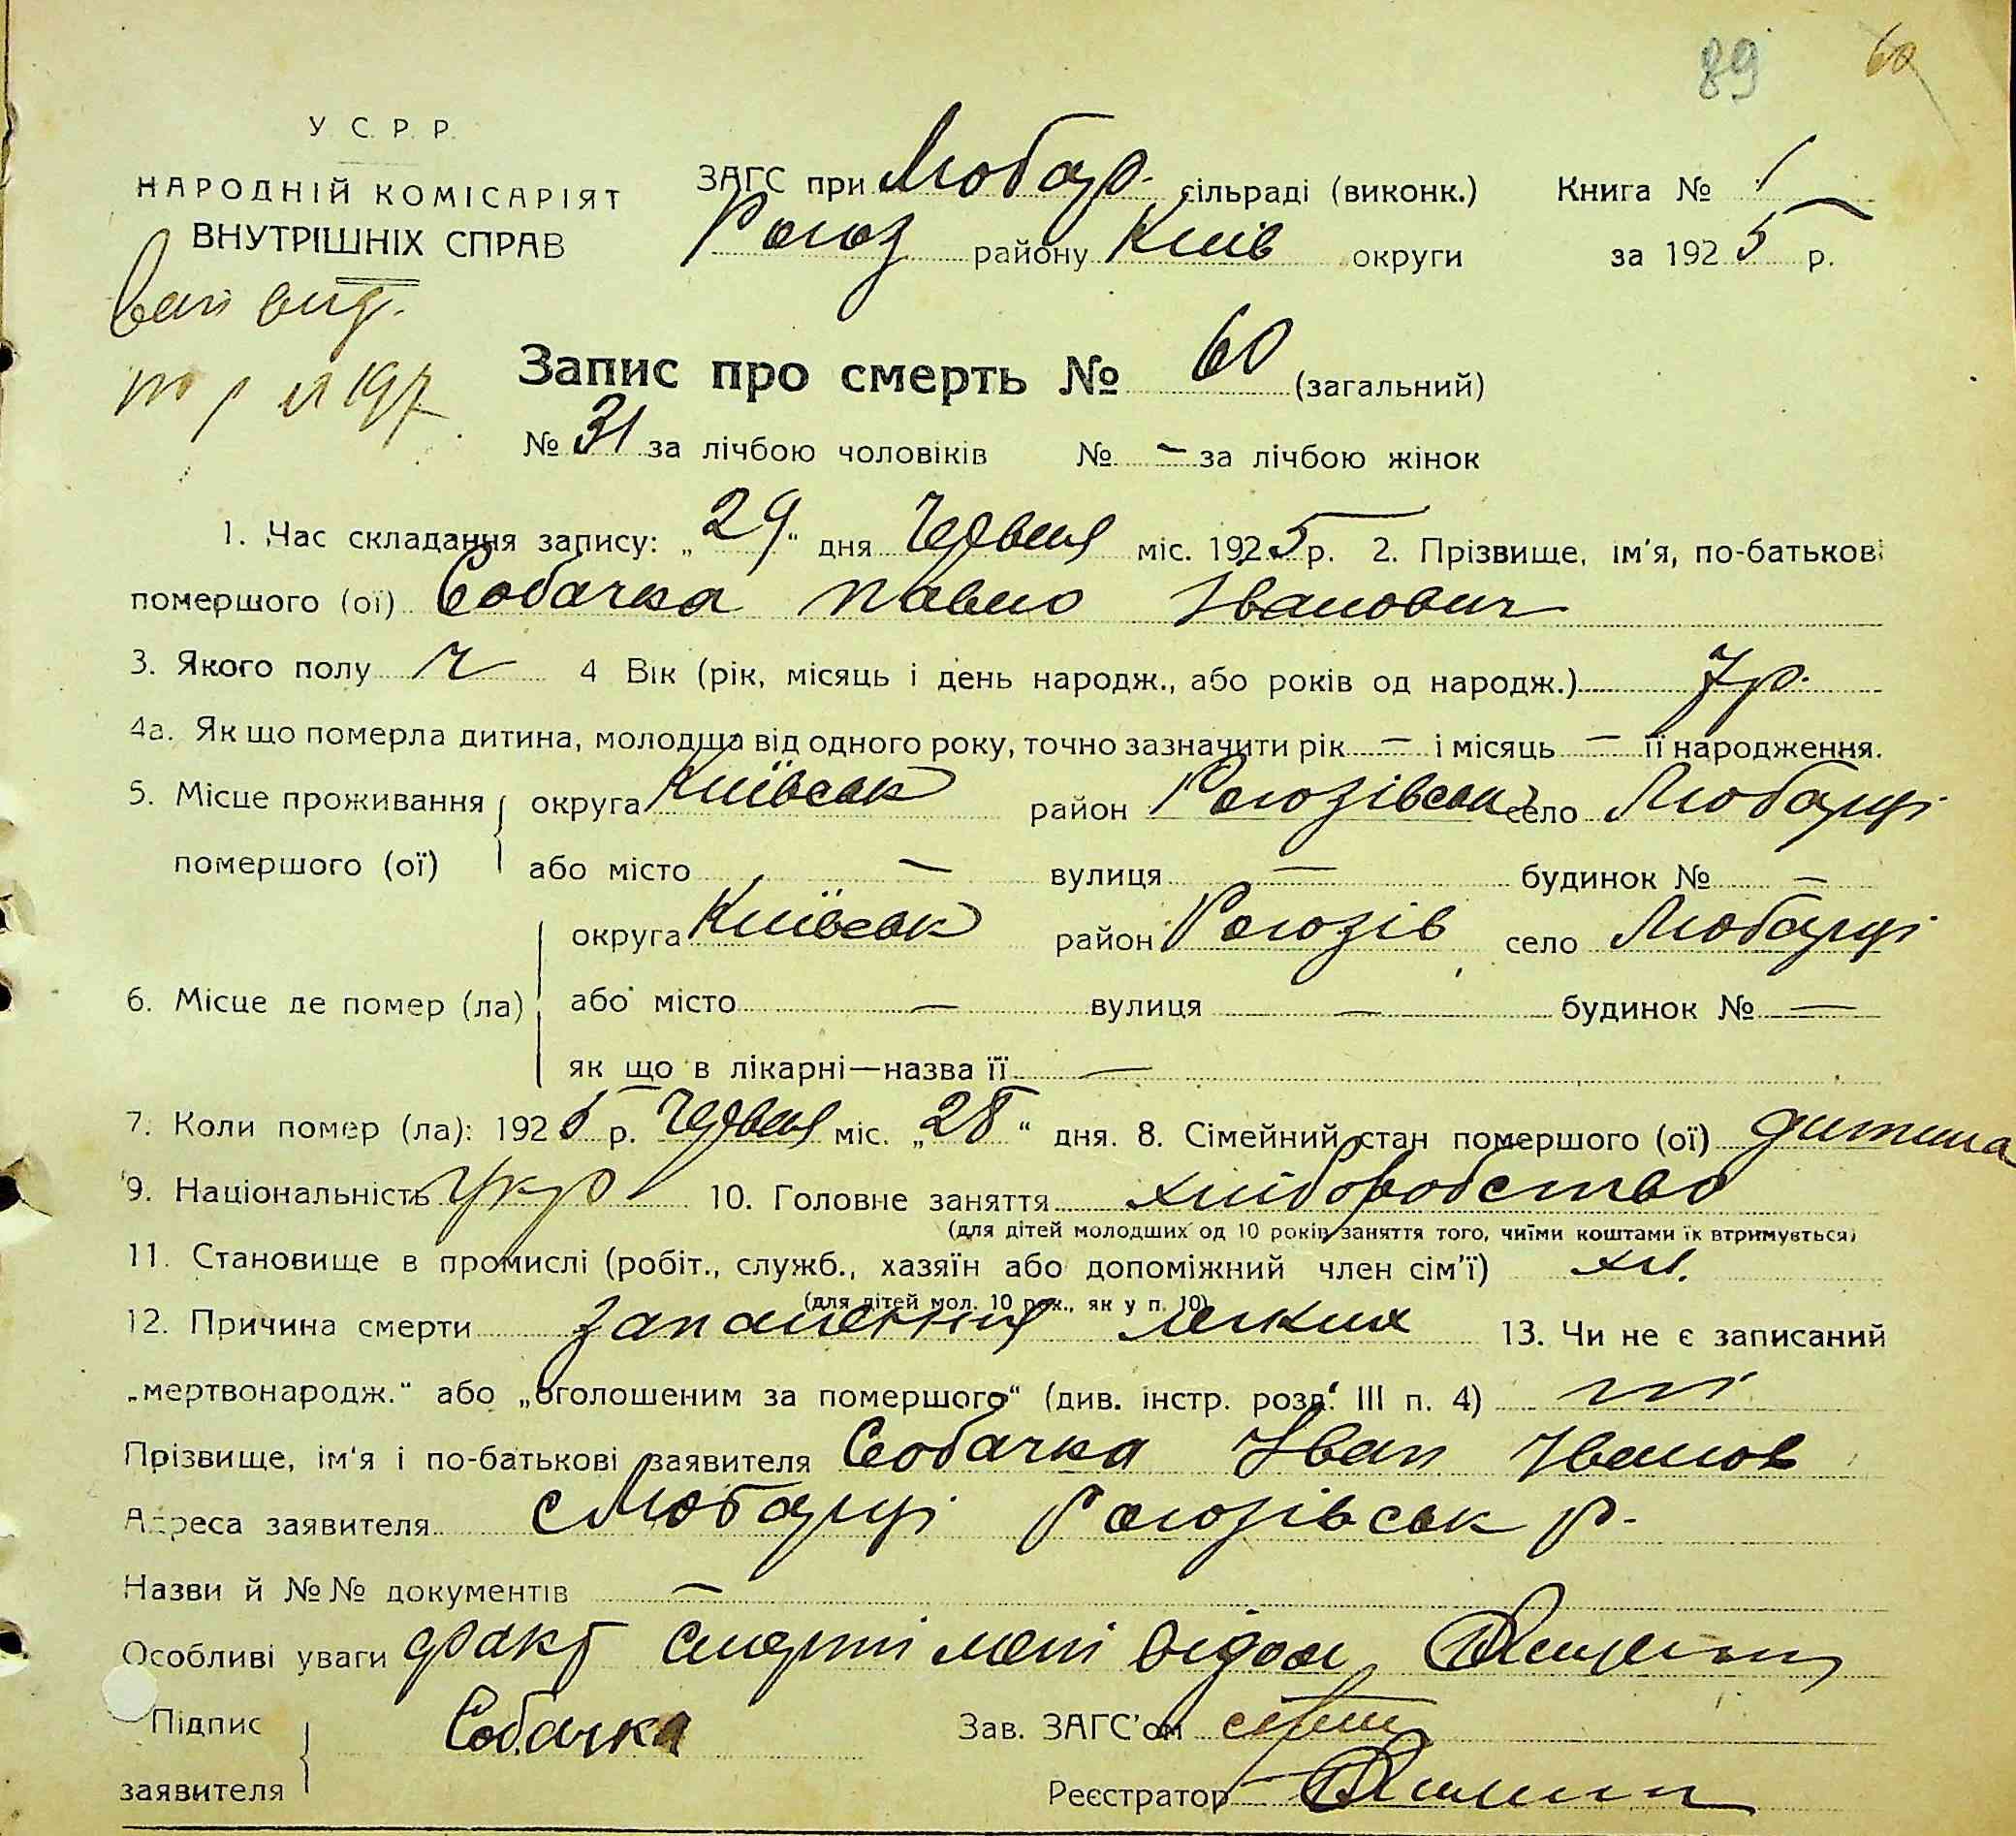 89 60
У С. Р. Р.
НАРОДНІЙ КОМІСАРІЯТ
ВНУТРІШНІХ СПРАВ
ЗАГС при Любар. сільраді (виконк.) Книга № 1
Рогоз району Київ округи за 1925 р.
Запис про смерть № 60 (загальний)
№ 31 за лічбою чоловіків № — за лічбою жінок
1. Час складання запису: „29" дня Червня міс. 1925 р. 2. Прізвище, ім'я, по-батькові
помершого (ої) Собачка Павло Іванович
3. Якого полу ч 4 Вік (рік, місяць і день народж., або років од народж.) 7 р.
4а. Як що померла дитина, молодща від одного року, точно зазначити рік — і місяць — її народження.
5. Місце проживання округа Київськ район Рогозівськ село Любарці
помершого (ої) або місто — вулиця — будинок № —
округа Київськ район Рогозів село Любарці
6. Місце де помер (ла) або місто — вулиця — будинок № —
як що в лікарні—назва її —
7. Коли помер (ла): 1925 р. Червня міс. „28" дня. 8. Сімейний стан помершого (ої) дитина
9. Національність Укр 10. Головне заняття хліборобство
(для дітей молодших од 10 років заняття того, чиїми коштами їх втримується)
11. Становище в промислі (робіт., служб., хазяїн або допоміжний член сім'ї) хл.
(для дітей мол. 10 рок., як у п. 10)
12. Причина смерти запаленния легких 13. Чи не є записаний
„мертвонародж." або „оголошеним за помершого" (див. інстр. розд. III п. 4) ні
Прізвище, ім'я і по-батькові заявителя Собачка Іван Іванов
Адреса заявителя с Любарці Рогозівськ р.
Назви й №№ документів —
Особливі уваги факт смерті мені відом
Підпис Собачка Зав. ЗАГС'ом
заявителя Реєстратор